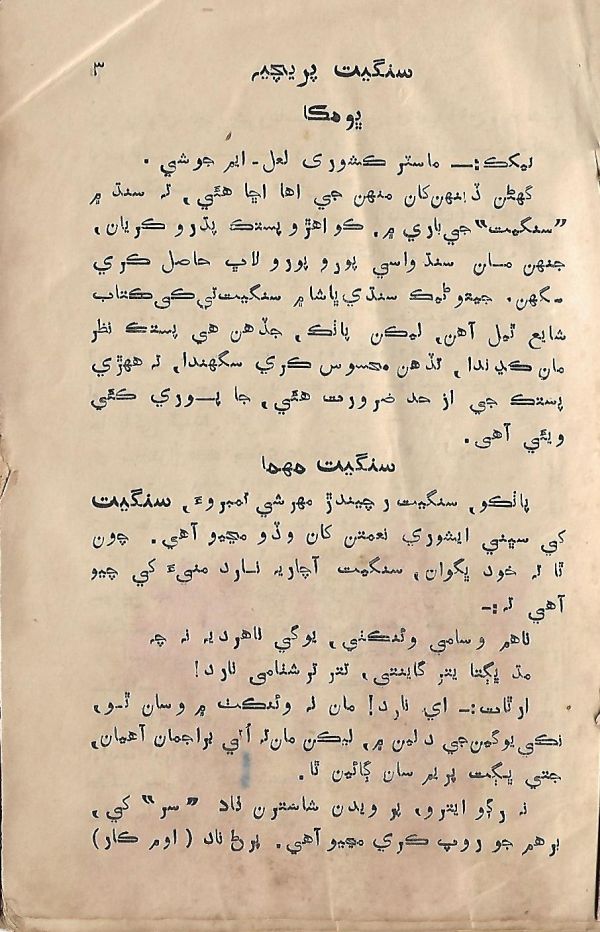 سنگيت پريچيه ٣
ڀومڪا
ليکڪ:ــ ماسٽر ڪشوري لعل۔ ايم جوشي .
گهڻن ڏينهن کان منهن جي اها اڇا هئي، ته سنڌ ۾
”سنگيت“ جي باري ۾، ڪو اهڙو پستڪ پڌرو ڪريان،
جنهن مان سنڌ واسي پورو پورو لاڀ حاصل ڪري
سگهن. جيتوڻيڪ سنڌي ڀاشا ۾ سنگيت تي ڪي ڪتاب
شايع ٿيل آهن، ليڪن پاٺڪ، جڏهن هي پستڪ نظر
مان ڪڍندا، تڏهن محسوس ڪري سگهندا، ته ههڙي
پستڪ جي از حد ضرورت هئي، جا پوري ڪئي
ويئي آهي.
سنگيت مهما
پاٺڪو، سنگيت رچيندڙ مهرشي تمبروءَ، سنگيت
کي سڀني ايشوري نعمتن کان وڏو مڃيو آهي. چون
ٿا ته خود ڀڳوان، سنگيت آچاريه نارد منيءَ کي چيو
آهي ته:ـ
ناهم وسامي وئڪنٺي، يوگي ناهرديه نه چه
مد ڀڳتا يتر گاينتي، تتر ترشٺامي نارد!
ارٿات:ـ اي نارد! مان نه وئڪنٺ ۾ وسان ٿو،
نڪي يوگين جي دلين ۾، ليڪن مان ته اُتي براجمان آهيان،
جتي ڀڳت پريم سان ڳائين ٿا.
نه رڳو ايترو، پر ويدن شاسترن ناد ”سر“ کي،
برهم جو روپ ڪري مڃيو آهي. پرڻ ناد (اوم ڪار)